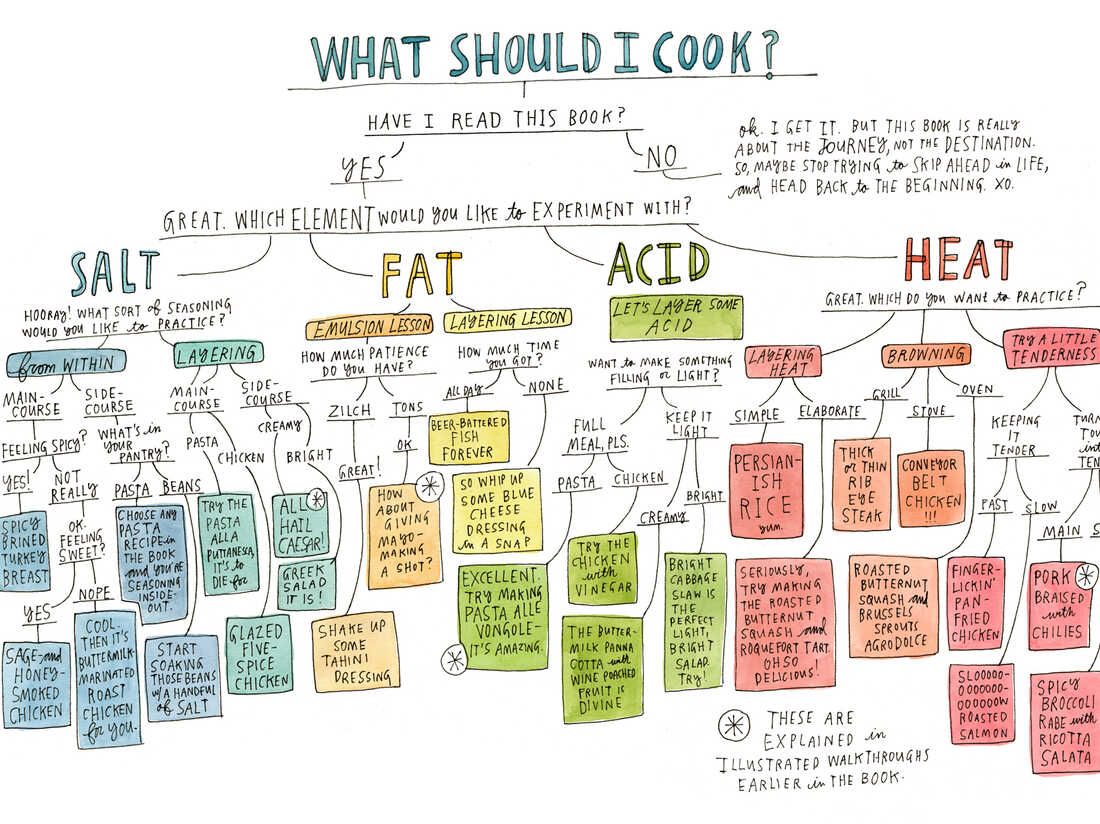 WHAT SHOULD I COOK?
HAVE I READ THIS BOOK?
YES
NO
ok. I GET IT. BUT THIS BOOK IS REALLY
ABOUT THE JOURNEY, NOT THE DESTINATION.
SO, MAYBE STOP TRYING to SKIP AHEAD in LIFE,
and HEAD BACK to THE BEGINNING. XO.
GREAT. WHICH ELEMENT WOULD YOU LIKE to EXPERIMENT WITH?
SALT
HOORAY! WHAT SORT of SEASONING
WOULD YOU LIKE to PRACTICE?
from WITHIN
MAIN-
COURSE
FEELING SPICY?
YES!
SPICY
BRINED
TURKEY
BREAST
NOT
REALLY
OK.
FEELING
SWEET?
YES
SAGE-and
HONEY-
SMOKED
CHICKEN
NOPE
COOL.
THEN IT'S
BUTTERMILK-
MARINATED
ROAST
CHICKEN
for YOU.
SIDE-
COURSE
WHAT'S in
YOUR
PANTRY?
PASTA
CHOOSE ANY
PASTA
RECIPE in
THE BOOK
and YOU'RE
SEASONING
INSIDE-
OUT.
BEANS
START
SOAKING
THOSE BEANS
w/A HANDFUL
of SALT
LAYERING
MAIN-
COURSE
PASTA
TRY THE
PASTA
ALLA
PUTTANESCA,
IT'S to
DIE for
CHICKEN
GLAZED
FIVE-
SPICE
CHICKEN
SIDE-
COURSE
CREAMY
ALL
HAIL
CAESAR!
BRIGHT
GREEK
SALAD
IT IS!
FAT
EMULSION LESSON
HOW MUCH PATIENCE
DO YOU HAVE?
ZILCH
GREAT!
SHAKE UP
SOME
TAHINI
DRESSING
TONS
OK.
HOW
ABOUT
GIVING
MAYO-
MAKING
A SHOT?
LAYERING LESSON
HOW MUCH TIME
YOU GOT?
ALL DAY
BEER-BATTERED
FISH
FOREVER
NONE
SO WHIP UP
SOME BLUE
CHEESE
DRESSING
in A SNAP
ACID
LET'S LAYER SOME
ACID
WANT to MAKE SOMETHING
FILLING or LIGHT?
FULL
MEAL, PLS.
PASTA
EXCELLENT.
TRY MAKING
PASTA ALLE
VONGOLE-
IT'S AMAZING.
CHICKEN
TRY THE
CHICKEN
with
VINEGAR
KEEP IT
LIGHT
CREAMY
THE BUTTER-
MILK PANNA
COTTA with
WINE POACHED
FRUIT is
DIVINE
BRIGHT
BRIGHT
CABBAGE
SLAW IS
THE
PERFECT
LIGHT,
BRIGHT
SALAD.
TRY!
HEAT
GREAT. WHICH DO YOU WANT to PRACTICE?
LAYERING
HEAT
SIMPLE
PERSIAN-
ISH
RICE
yum.
ELABORATE
SERIOUSLY,
TRY MAKING
THE ROASTED
BUTTERNUT
SQUASH and
ROQUEFORT TART.
OH SO
DELICIOUS!
BROWNING
GRILL
THICK
or THIN
RIB
EYE
STEAK
STOVE
CONVEYOR
BELT
CHICKEN
!!!
OVEN
ROASTED
BUTTERNUT
SQUASH and
BRUSSELS
SPROUTS
AGRODOLCE
TRY A LITTLE
TENDERNESS
KEEPING
IT
TENDER
FAST
FINGER-
LICKIN'
PAN-
FRIED
CHICKEN
SLOW
SLOOOOO-
OOOOOOO-
OOOOOOW
ROASTED
SALMON
MAIN
PORK
BRAISED
with
CHILIES
SPICY
BROCCOLI
RABE with
RICOTTA
SALATA
THESE ARE
EXPLAINED in
ILLUSTRATED WALKTHROUGHS
EARLIER in THE BOOK.